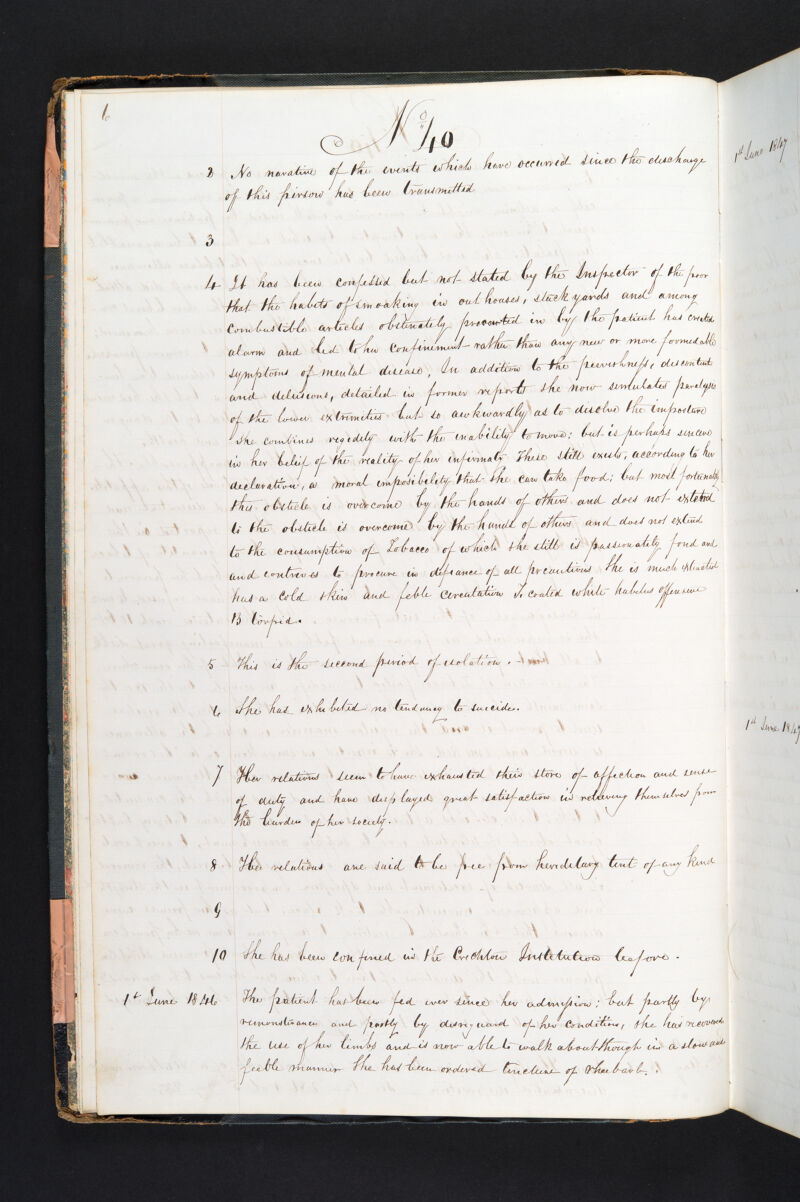 6
No 40
2 No narative of the events which have occurred since the discharge
of this person has been transmitted
3
4 It has been confessed but not stated by the Inspector of the poor
that the habits of smoaking in out houses, stack yards and among
combustible articles obstinately in by the patient has created
alarm and led to her confinement rather than any new or more formedable
symptoms of mental disease, In addition to the peevishness, discontent
and delusions, detailed in former reports she now simulates paralysis
of the lower extremities but so awkwardly as to disclose the imposture
she combines regidity with the inability to move; but is perhaps sincere
in her belief of the reality of her infirmaty There still exists, according to her
declaration, a moral imposibility that she can take food; but most fortunately
this obsticle is overcome by the hands of others and does not extend
to the obsticle is overcome by the hands of others and does not extend
to the consumption of Tobacco of which she still is passionately fond and
and contrives to procure in defiance of all precautions She is much extracted
has a cold skin and feble circulation T. coated white habitus offensive
B torpid.
5 This is the seccond period of isolation.
6 She has exhibited no tendancy to suicide.
7 Her relations seem to have exhausted their store of affection and sense
of duty and have displayed great satisfaction in releiving themselves from
the burden of her society.
8 Her relations are said to be free from hereditary tent of any kind
9
10 She has been confined in the Crichton Institution before.
1st June 1846 The patient has been fed ever since her admission; but partly by
remonstrance and partly by disreguard of her condition, she has recovered
the use of her limbs and is now able to walk about though in a slow and
feeble manner She has been ordered tincture of Rheubarb.
1st June 1847
1st June 1847